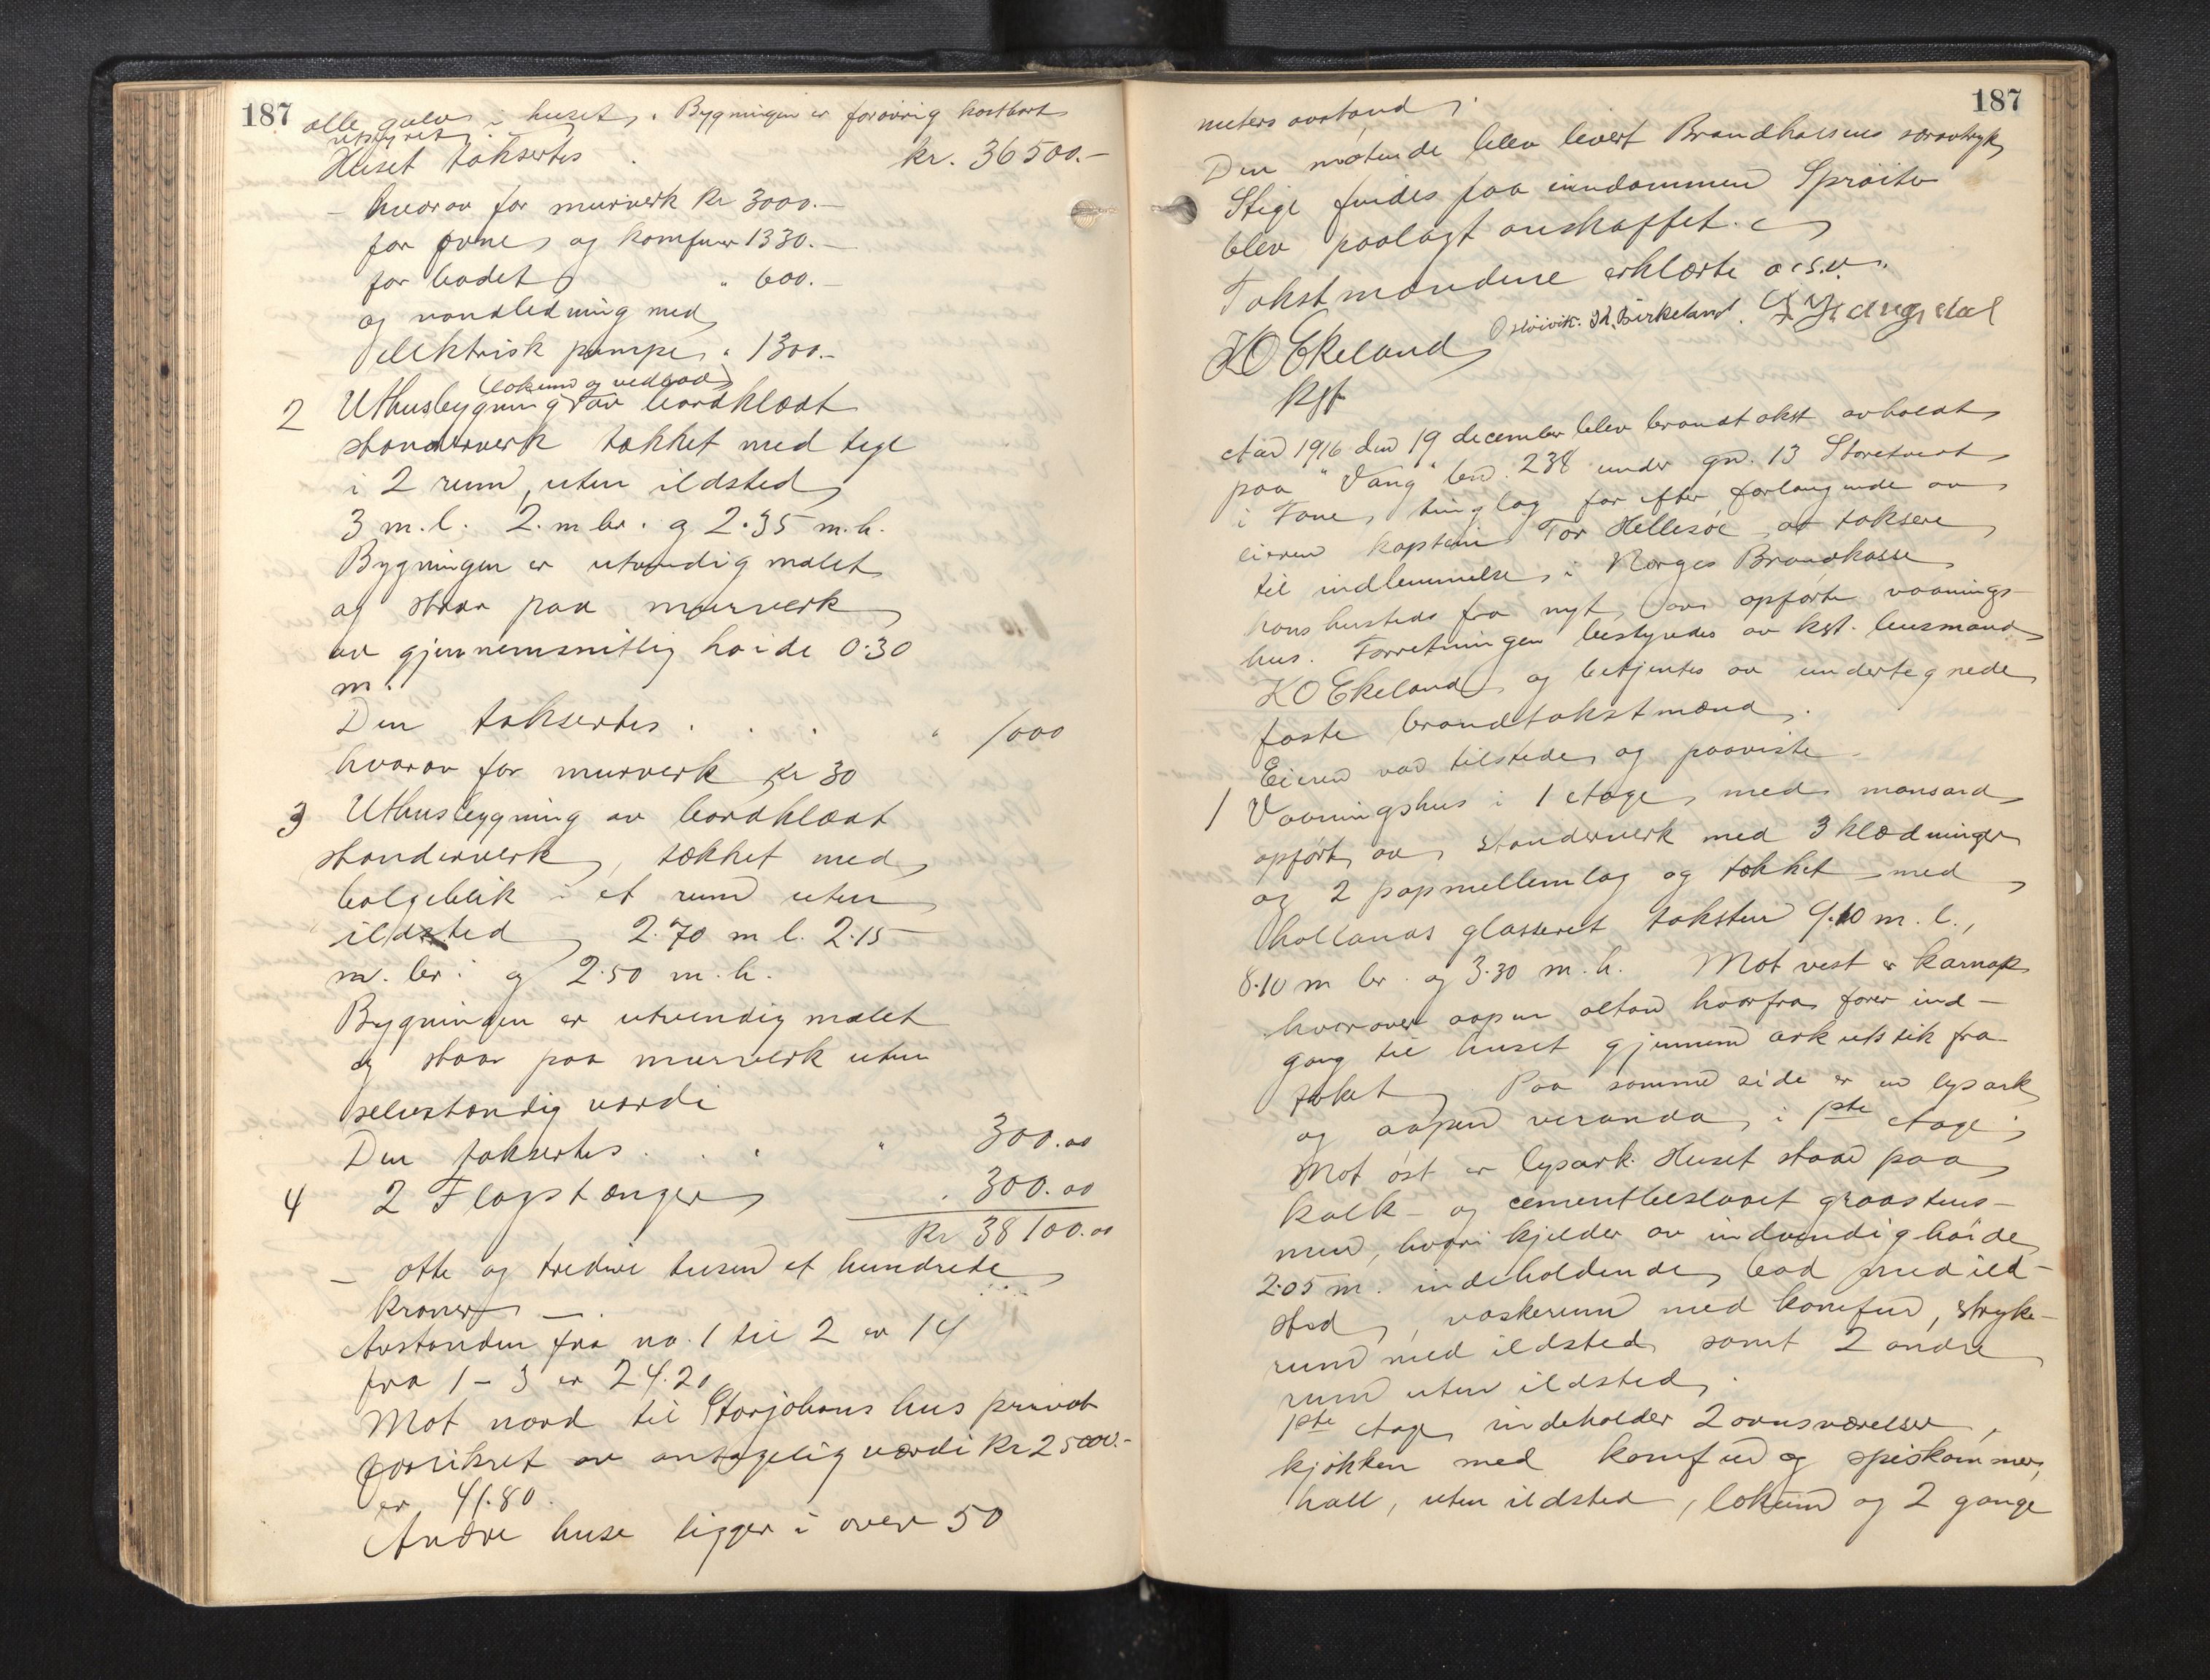 187
alle gulv i huset. Bygningen er forøvrig kostbart
utstyret.
Huset taksertes . kr. 36500.-
- hvorav for murverk kr 3000.-
for ovne og komfur 1330.-
for badet " 600.-
og vandledning med
elektrisk pumpe " 1300.-
(lokum og vedbod)
2 Uthusbygning av bordklædt
standerverk tækket med tegl
i 2 rum, uten ildsted
3 m. l. 2. m br. og 2.35 m. h.
Bygningen er utvendig malet
og staar paa murverk
av gjennemsnitlig høide 0.30
m.
Den taksertes . . . " 1000
hvorav for murverk kr 30
3 Uthusbygning av bordklædt
standerverk, tækket med
bølgeblik i et rum uten
ildsted 2.70 m l. 2.15
m. br. og 2.50 m. h.
Bygningen er utvendig malet
og staar paa murverk uten
selvstændig værdi
Den taksertes . . . " 300.00
4 2 Flagstænger . 300.00
Kr 38100.00
- otte og tredive tusen et hundrede
kroner -.
Avstanden fra no. 1 til 2 er 14
fra 1 - 3 er 24.20
Mot nord til Storjohans hus privat
forsikret av antagelig værdi kr 25000.-
er 41.80.
Andre huse ligger i over 50
187
meters avstand.
Den møtende blev levert Brandkassens særavtryk
Stige findes paa eiendommen Sprøite
blev paalagt anskaffet.
Takstmændene erklærte o.s.v.
KO Ekeland Birkeland.
Kst
Aar 1916 den 19 december blev brandtakst avholdt
paa "Vang" bn. 238 under gn. 13 Storetvedt
i Fane tinglag for efter forlangende av
eieren kaptein Tor Hellesøe at taksere
til indlemmelse i Norges Brandkasse
hans husteds fra nyt av opførte vaanings-
hus. Forretningen bestyredes av kst. lensmand
KO Ekeland og betjentes av undertegnede
faste brandtakstmænd.
Eieren var tilstede og paaviste
1 Vaaningshus i 1 etage med mansard
opført av standerverk med 3 klædninger
og 2 papmellemlag og tækket med
hollands glasseret taksten 9.10 m. l.,
8.10 m br. og 3.30 m. h. Mot vest er karnap
hvorover aapen altan hvorfra fører ind-
gang til huset gjennem arkutstik fra
taket. Paa samme side er en lysark
og aapen veranda i 1ste etage;
Mot øst er lysark. Huset staar paa
kalk- og cementbeslaaet graastens-
mur, hvori kjelder av indvendig høide
2.05 m. indeholdende bad med ild-
sted, vaskerum med komfur, stryke-
rum med ildsted samt 2 andre
rum uten ildsted.
1ste etage indeholder 2 ovnsværelser,
kjøkken med komfur og spiskammer,
hall, uten ildsted, lokum og 2 gange